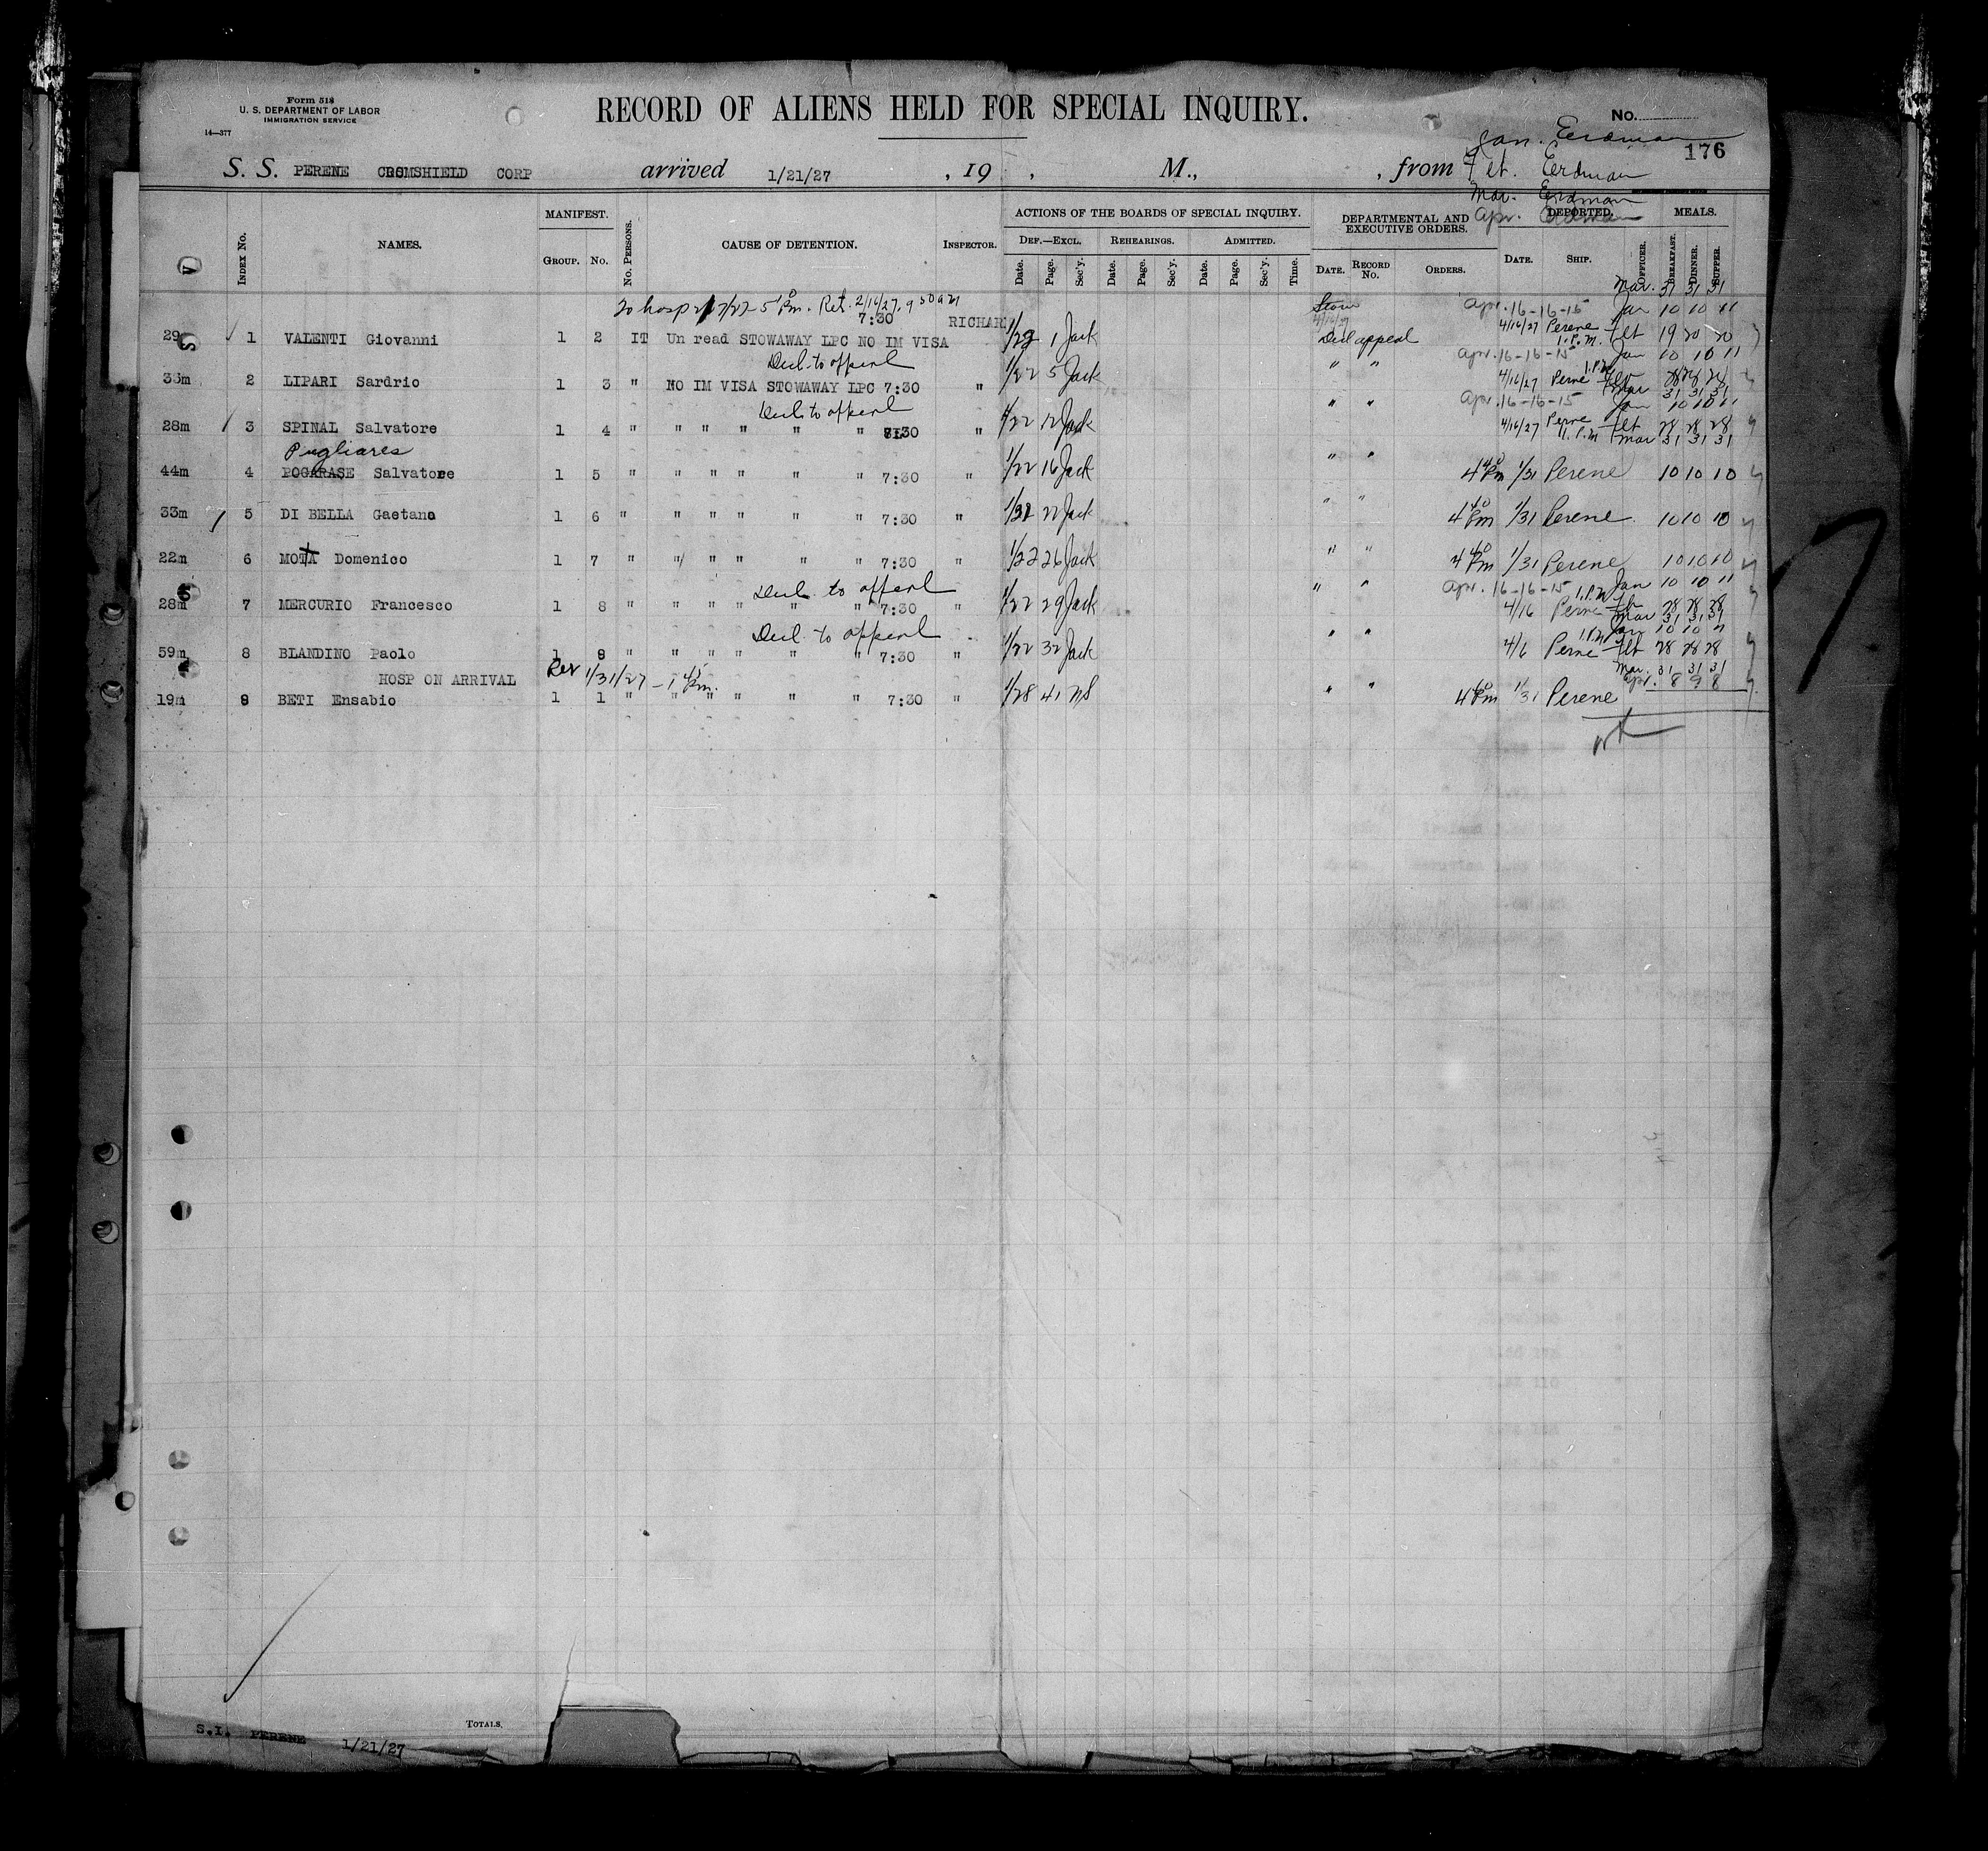 Form 518
U. S. DEPARTMENT OF LABOR
IMMIGRATION SERVICE
14—377
RECORD OF ALIENS HELD FOR SPECIAL INQUIRY.
No.
176
Jan. Eerdman
S. S. PERENE CROMSHIELD CORP arrived 1/21/27 , 19 , M., , from
Eerdman
Mar. Eerdman
Apr. Eerdman
INDEX No. NAMES. MANIFEST. GROUP. No. No. PERSONS. CAUSE OF DETENTION. INSPECTOR. ACTIONS OF THE BOARDS OF SPECIAL INQUIRY. DEF.—EXCL. Date. Page. Sec'y. REHEARINGS. Date. Page. Sec'y. ADMITTED. Date. Page. Sec'y. Time. DEPARTMENTAL AND EXECUTIVE ORDERS. DATE. RECORD No. ORDERS. DEPORTED. DATE. SHIP. OFFICER. MEALS. BREAKFAST. DINNER. SUPPER.
Mar. 31 31 31
To hosp 5 Pm. Ret. 2/16/27, 9 30 am
Apr. 16-16-15 Jan 10 10 11
29 1 VALENTI Giovanni 1 2 IT Un read STOWAWAY LPC NO IM VISA 7:30 RICHAR 1/22 1 Jack Decl appeal 4/16/27 Perene 1.P.M. 19 20 20
Decl. to appeal
Apr. 16-16-15 Jan 10 10 11
2 LIPARI Sardrio 1 3 " NO IM VISA STOWAWAY LPC 7:30 " 1/22 5 Jack " " 4/16/27 Perene 1.P.M 28 28 28
Mar 31 31 31
Decl. to appeal
Apr. 16-16-15 Jan 10 10 11
28m 3 SPINAL Salvatore 1 4 " " " " " " " 1/22 12 Jack " " 4/16/27 Perene 1.P.M 28 28 28
Mar 31 31 31
Pugliares
44m 4 POGARASE Salvatore 1 5 " " " " " " 7:30 " 1/22 16 Jack " " 4 40 Pm 1/31 Perene 10 10 10
33m 5 DI BELLA Gaetano 1 6 " " " " " " 7:30 " 22 Jack " " 4 40 Pm 1/31 Perene 10 10 10
22m 6 MOTA Domenico 1 7 " " " " " " 7:30 " 1/22 26 Jack " " 4 40 Pm 1/31 Perene 10 10 10
Decl. to appeal
Apr. 16-16-15 1.P.M Jan 10 10 11
28m 7 MERCURIO Francesco 1 8 " " " " " " 7:30 " 1/22 29 Jack " " 4/16 Perene 28 28 28
Mar 31 31 31
Decl. to appeal
Jan 10 10 11
59m 8 BLANDINO Paolo 1 9 " " " " " " 7:30 " 1/22 32 Jack " " 4/6 Perene 1.P.M 28 28 28
Mar. 31 31 31
Apr. 8 9 8
HOSP ON ARRIVAL
1/31/27 - 1 45 Pm.
19m 9 BETI Ensabio 1 1 " " " " " " 7:30 " 1/28 41 " " 4 40 Pm 1/31 Perene
TOTALS.
S.I. PERENE 1/21/27